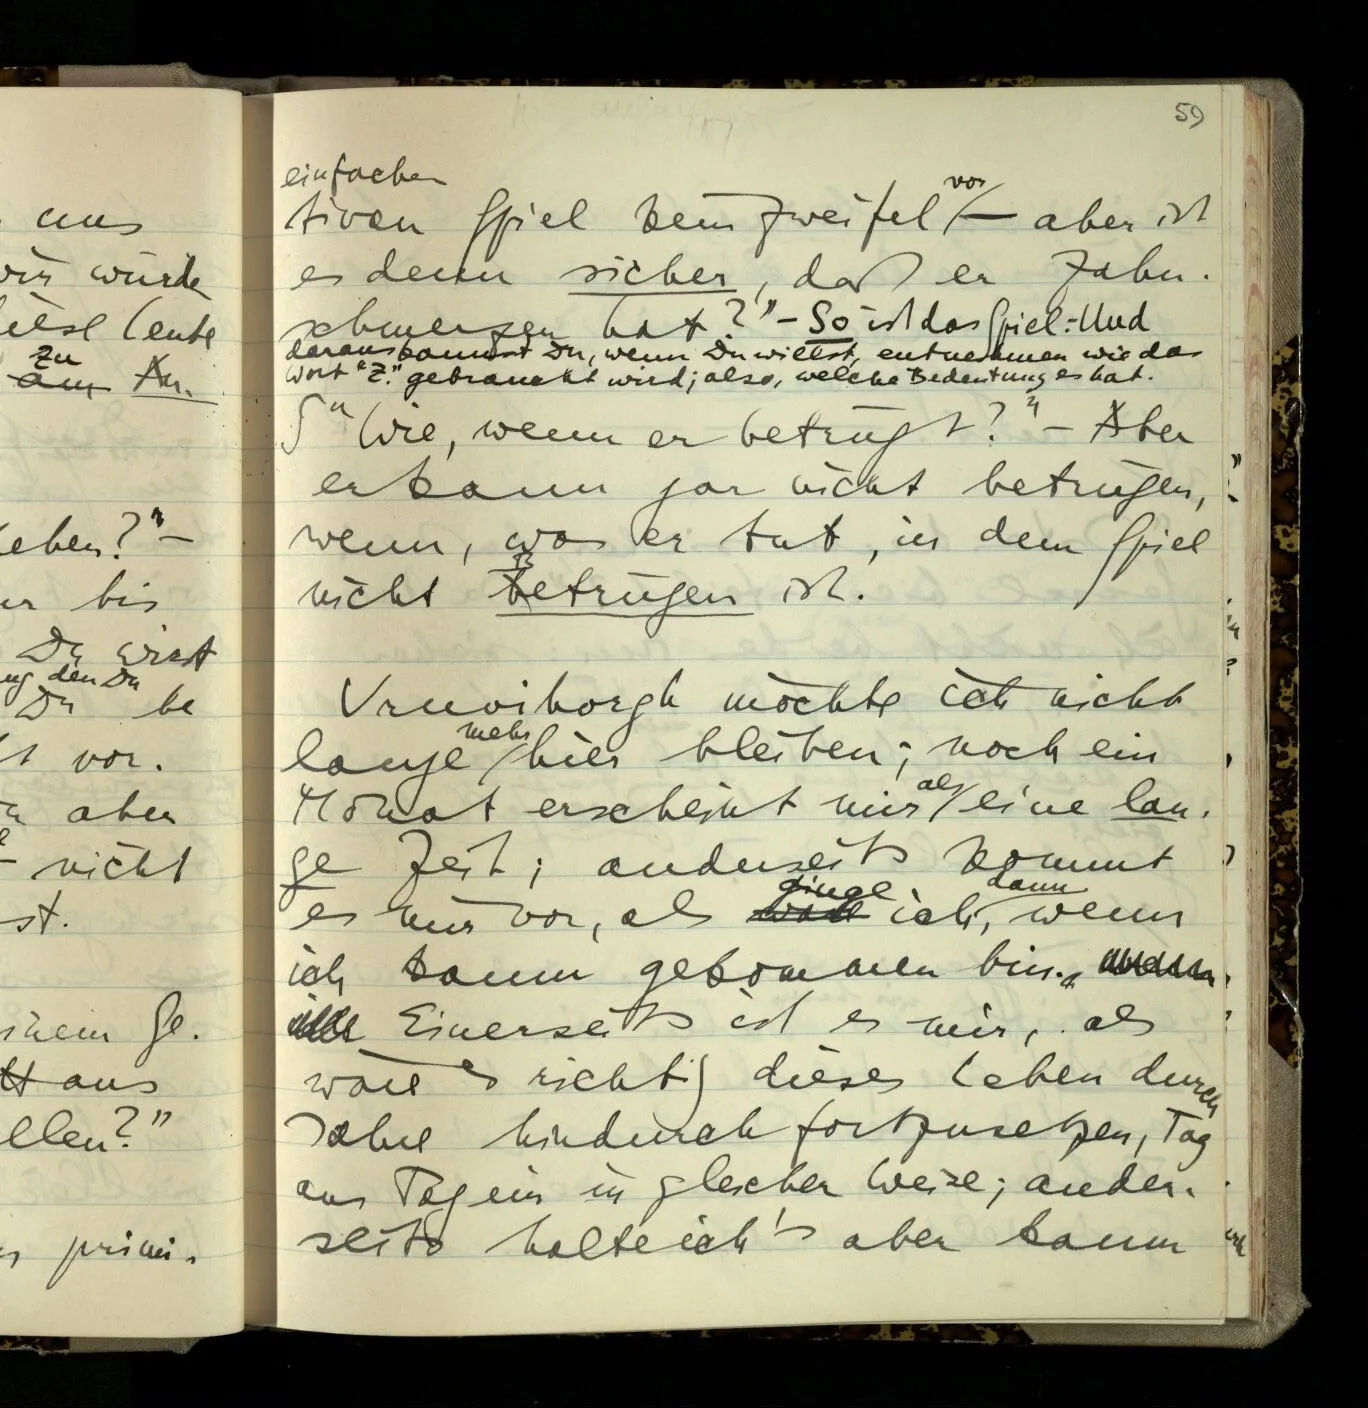 aus
wir würde
diese Leute
zu
am An.
eben?" –
bis
Du wirst
den Du
Du be
vor.
aber
nicht
st.
inem Ge.
aus
ellen?"
primi.
59
einfachen
tiven Spiel kein Zweifel vor – aber ist
es denn sicher, daß er Zahn.
schmerzen hat?" – So ist das Spiel: Und
daraus kannst Du, wenn Du willst, entnehmen wie das
Wort "Z." gebraucht wird; also, welche Bedeutung es hat.
∫ "Wie, wenn er betrügt?" – Aber
er kann gar nicht betrügen,
wenn, was er tut, in dem Spiel
nicht betrügen ist.
Vrnviborgh möchte ich nicht
lange mehr hier bleiben; noch ein
Monat erscheint mir als eine lan.
ge Zeit; anderseits kommt
es mir vor, als ginge ich, dann wenn
ich kaum gekommen bin.
Einerseits ist es mir, als
wäre es richtig dieses Leben durch
Jahre hindurch fortzusetzen, Tag
aus Tag ein in gleicher Weise; ander.
seits halte ich's aber kaum